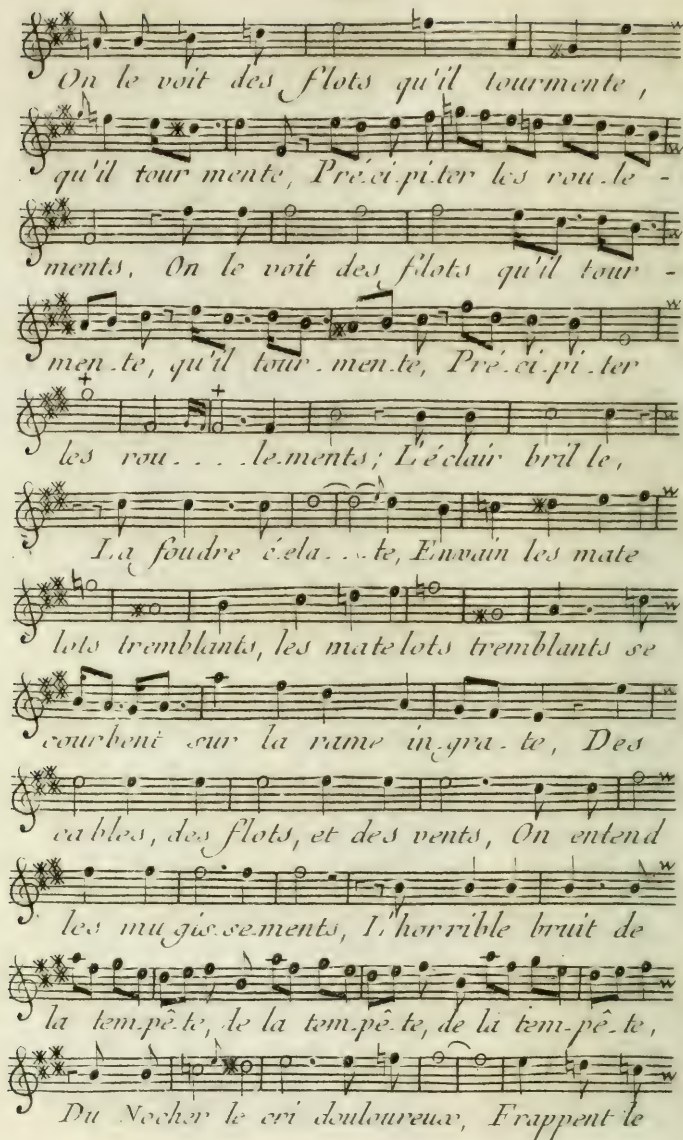 On le voit des flots qu'il tourmente,
qu'il tour mente, Pré.ci.pi.ter les rou.le -
ments, On le voit des flots qu'il tour -
men.te, qu'il tour.men.te, Pré.ci.pi.ter
les rou.... le.ments; L'éclair bril le,
La foudre é.cla...te, Envain les mate
lots tremblants, les matelots tremblants se
courbent sur la rame in.gra.te, Des
cables, des flots, et des vents, On entend
les mu gis.se.ments, L'horrible bruit de
la tem.pê.te, de la tem.pê.te, de la tem.pê.te,
Du Nocher le cri douloureux, Frappent le